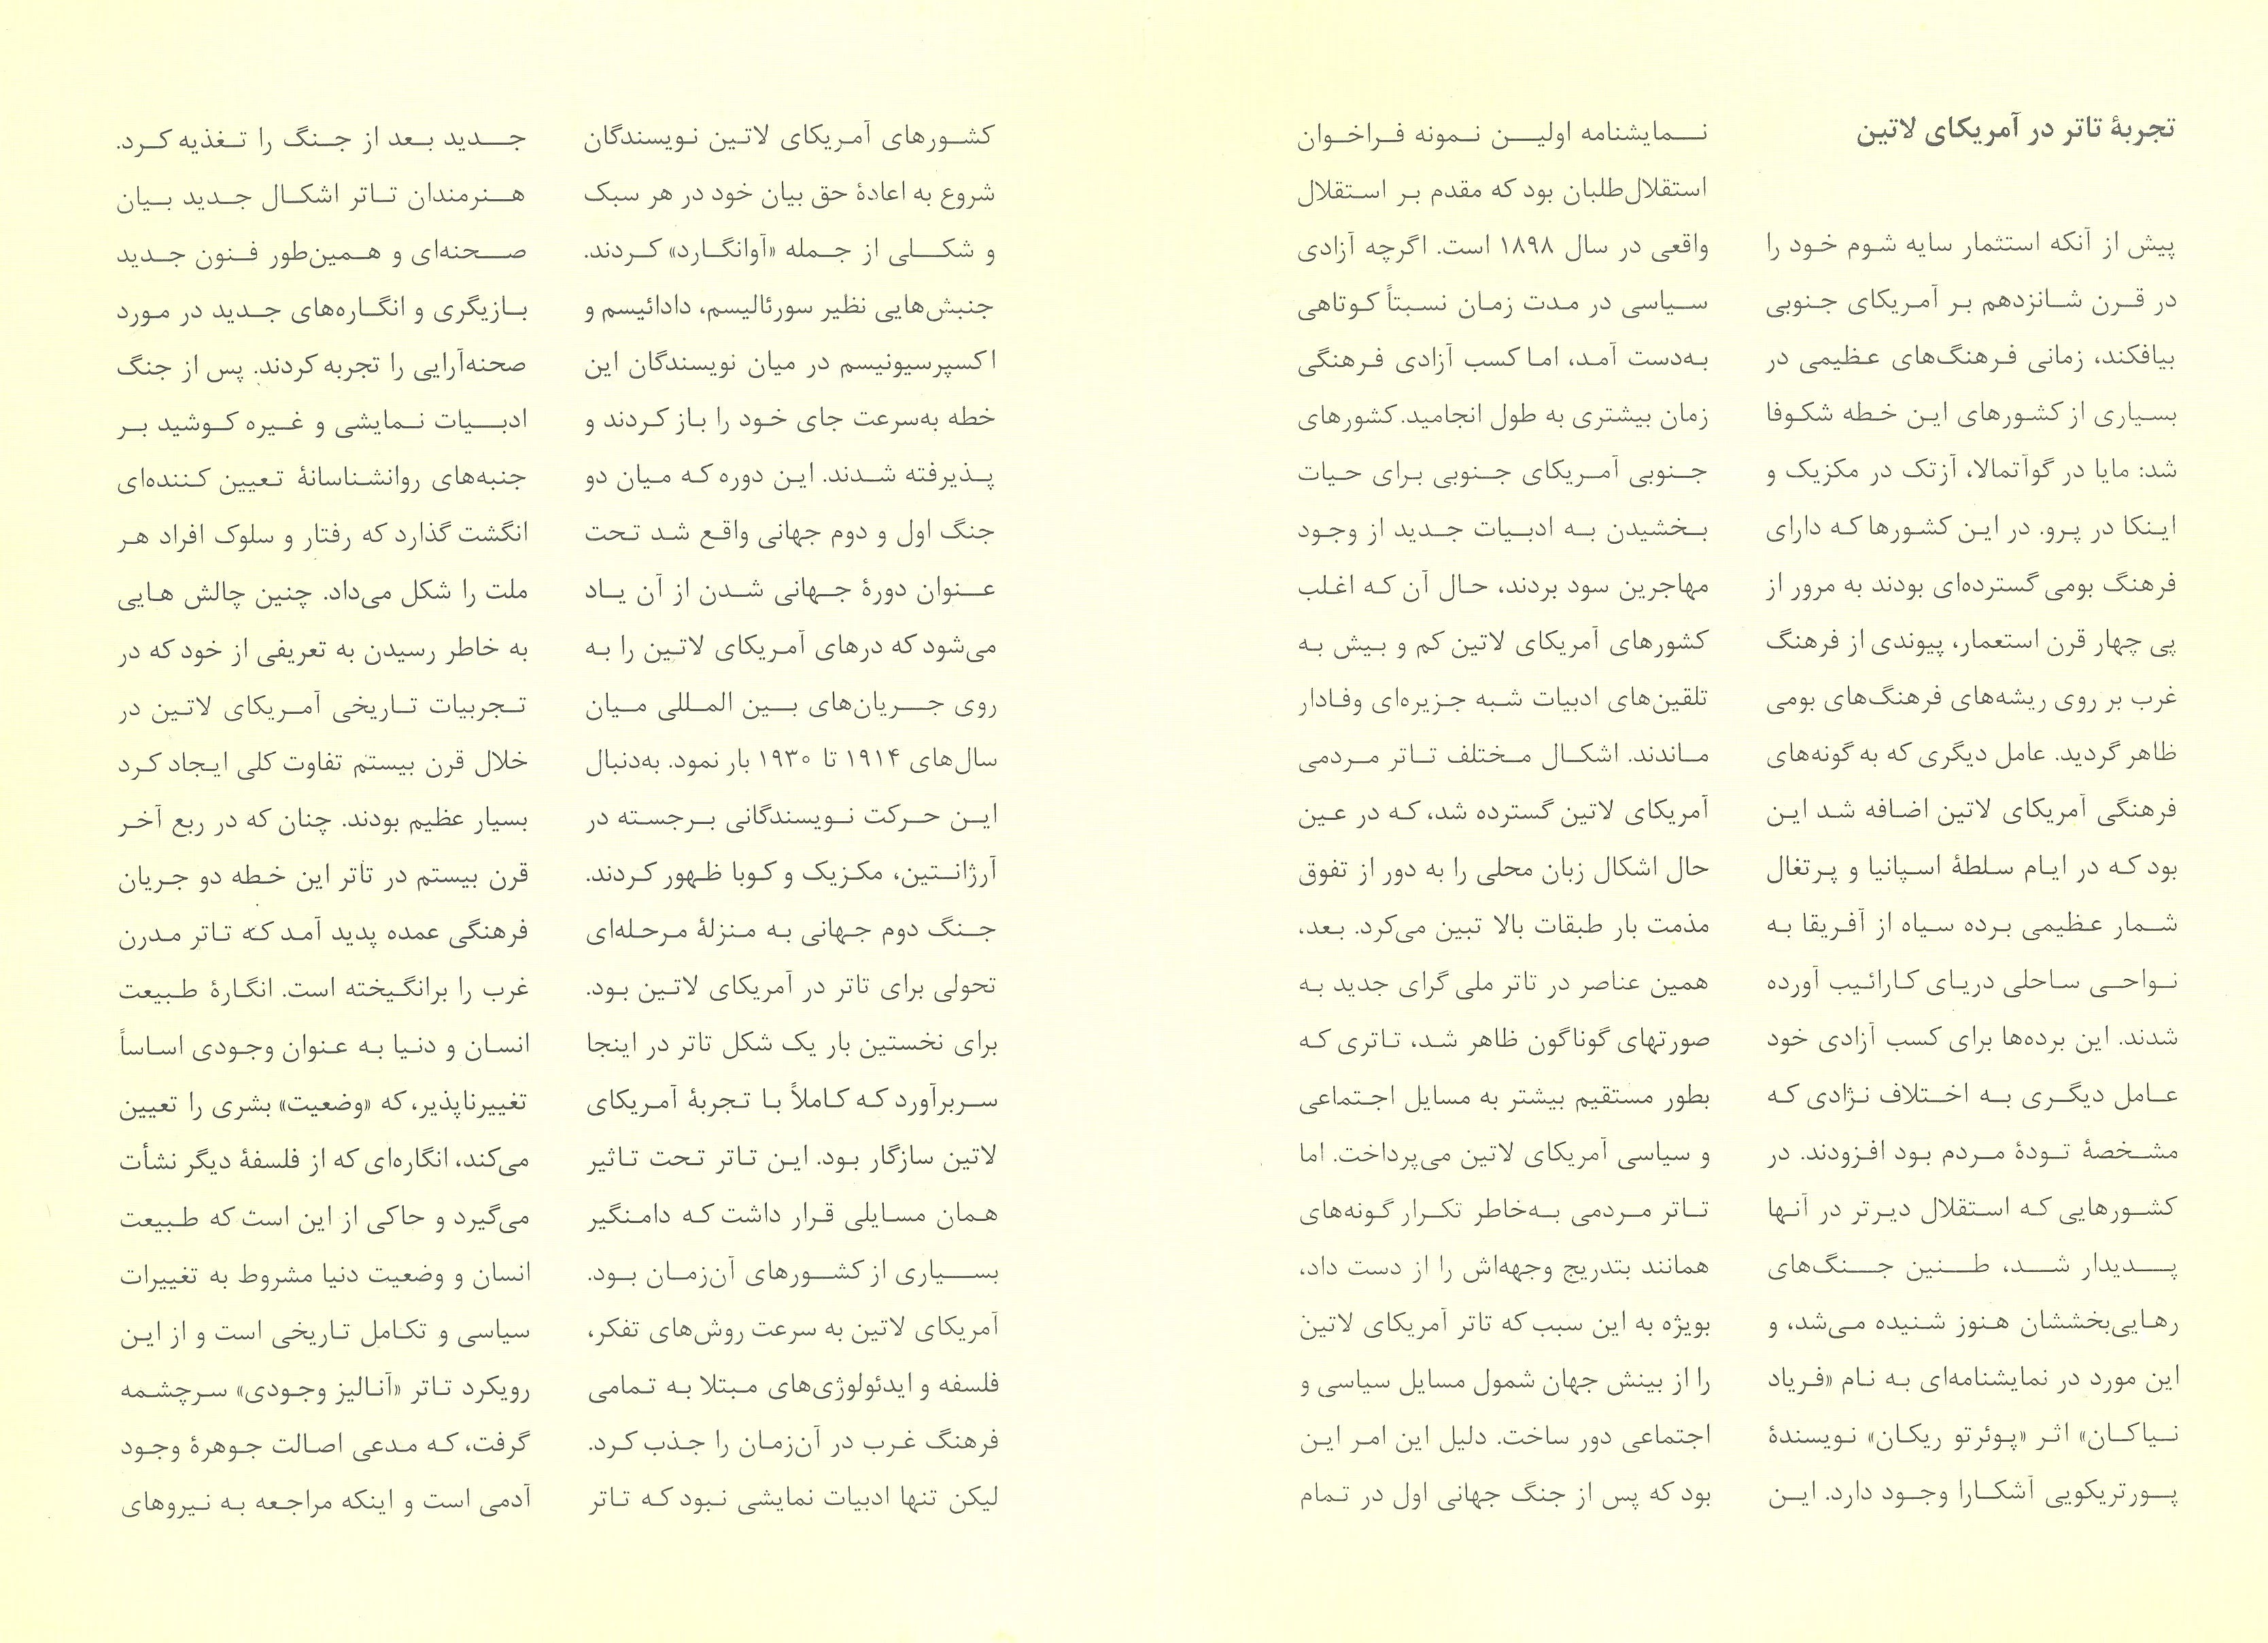 تجربهٔ تاتر در آمریکای لاتین
پیش از آنکه استثمار سایه شوم خود را
در قرن شانزدهم بر آمریکای جنوبی
بیافکند، زمانی فرهنگ‌های عظیمی در
بسیاری از کشورهای این خطه شکوفا
شد: مایا در گوآتمالا، آزتک در مکزیک و
اینکا در پرو. در این کشورها که دارای
فرهنگ بومی گسترده‌ای بودند به مرور از
پی چهار قرن استعمار، پیوندی از فرهنگ
غرب بر روی ریشه‌های فرهنگ‌های بومی
ظاهر گردید. عامل دیگری که به گونه‌های
فرهنگی آمریکای لاتین اضافه شد این
بود که در ایام سلطهٔ اسپانیا و پرتغال
شمار عظیمی برده سیاه از آفریقا به
نواحی ساحلی دریای کارائیب آورده
شدند. این برده‌ها برای کسب آزادی خود
عامل دیگری به اختلاف نژادی که
مشخصهٔ تودهٔ مردم بود افزودند. در
کشورهایی که استقلال دیرتر در آنها
پدیدار شد، طنین جنگ‌های
رهایی‌بخششان هنوز شنیده می‌شد، و
این مورد در نمایشنامه‌ای به نام «فریاد
نیاکان» اثر «پوئرتو ریکان» نویسندهٔ
پورتریکویی آشکارا وجود دارد. این
نمایشنامه اولین نمونه فراخوان
استقلال‌طلبان بود که مقدم بر استقلال
واقعی در سال ۱۸۹۸ است. اگرچه آزادی
سیاسی در مدت زمان نسبتاً کوتاهی
به‌دست آمد، اما کسب آزادی فرهنگی
زمان بیشتری به طول انجامید. کشورهای
جنوبی آمریکای جنوبی برای حیات
بخشیدن به ادبیات جدید از وجود
مهاجرین سود بردند، حال آن که اغلب
کشورهای آمریکای لاتین کم و بیش به
تلقین‌های ادبیات شبه جزیره‌ای وفادار
ماندند. اشکال مختلف تاتر مردمی
آمریکای لاتین گسترده شد، که در عین
حال اشکال زبان محلی را به دور از تفوق
مذمت بار طبقات بالا تبین می‌کرد. بعد،
همین عناصر در تاتر ملی گرای جدید به
صورتهای گوناگون ظاهر شد، تاتری که
بطور مستقیم بیشتر به مسایل اجتماعی
و سیاسی آمریکای لاتین می‌پرداخت. اما
تاتر مردمی به‌خاطر تکرار گونه‌های
همانند بتدریج وجهه‌اش را از دست داد،
بویژه به این سبب که تاتر آمریکای لاتین
را از بینش جهان شمول مسایل سیاسی و
اجتماعی دور ساخت. دلیل این امر این
بود که پس از جنگ جهانی اول در تمام
کشورهای آمریکای لاتین نویسندگان
شروع به اعادهٔ حق بیان خود در هر سبک
و شکلی از جمله «آوانگارد» کردند.
جنبش‌هایی نظیر سورئالیسم، دادائیسم و
اکسپرسیونیسم در میان نویسندگان این
خطه به‌سرعت جای خود را باز کردند و
پذیرفته شدند. این دوره که میان دو
جنگ اول و دوم جهانی واقع شد تحت
عنوان دورهٔ جهانی شدن از آن یاد
می‌شود که درهای آمریکای لاتین را به
روی جریان‌های بین المللی میان
سال‌های ۱۹۱۴ تا ۱۹۳۰ بار نمود. به‌دنبال
این حرکت نویسندگانی برجسته در
آرژانتین، مکزیک و کوبا ظهور کردند.
جنگ دوم جهانی به منزلهٔ مرحله‌ای
تحولی برای تاتر در آمریکای لاتین بود.
برای نخستین بار یک شکل تاتر در اینجا
سربرآورد که کاملاً با تجربهٔ آمریکای
لاتین سازگار بود. این تاتر تحت تاثیر
همان مسایلی قرار داشت که دامنگیر
بسیاری از کشورهای آن‌زمان بود.
آمریکای لاتین به سرعت روش‌های تفکر،
فلسفه و ایدئولوژی‌های مبتلا به تمامی
فرهنگ غرب در آن‌زمان را جذب کرد.
لیکن تنها ادبیات نمایشی نبود که تاتر
جدید بعد از جنگ را تغذیه کرد.
هنرمندان تاتر اشکال جدید بیان
صحنه‌ای و همین‌طور فنون جدید
بازیگری و انگاره‌های جدید در مورد
صحنه‌آرایی را تجربه کردند. پس از جنگ
ادبیات نمایشی و غیره کوشید بر
جنبه‌های روانشناسانهٔ تعیین کننده‌ای
انگشت گذارد که رفتار و سلوک افراد هر
ملت را شکل می‌داد. چنین چالش هایی
به خاطر رسیدن به تعریفی از خود که در
تجربیات تاریخی آمریکای لاتین در
خلال قرن بیستم تفاوت کلی ایجاد کرد
بسیار عظیم بودند. چنان که در ربع آخر
قرن بیستم در تاتر این خطه دو جریان
فرهنگی عمده پدید آمد که تاتر مدرن
غرب را برانگیخته است. انگارهٔ طبیعت
انسان و دنیا به عنوان وجودی اساساً
تغییرناپذیر، که «وضعیت» بشری را تعیین
می‌کند، انگاره‌ای که از فلسفهٔ دیگر نشأت
می‌گیرد و حاکی از این است که طبیعت
انسان و وضعیت دنیا مشروط به تغییرات
سیاسی و تکامل تاریخی است و از این
رویکرد تاتر «آنالیز وجودی» سرچشمه
گرفت، که مدعی اصالت جوهرهٔ وجود
آدمی است و اینکه مراجعه به نیروهای